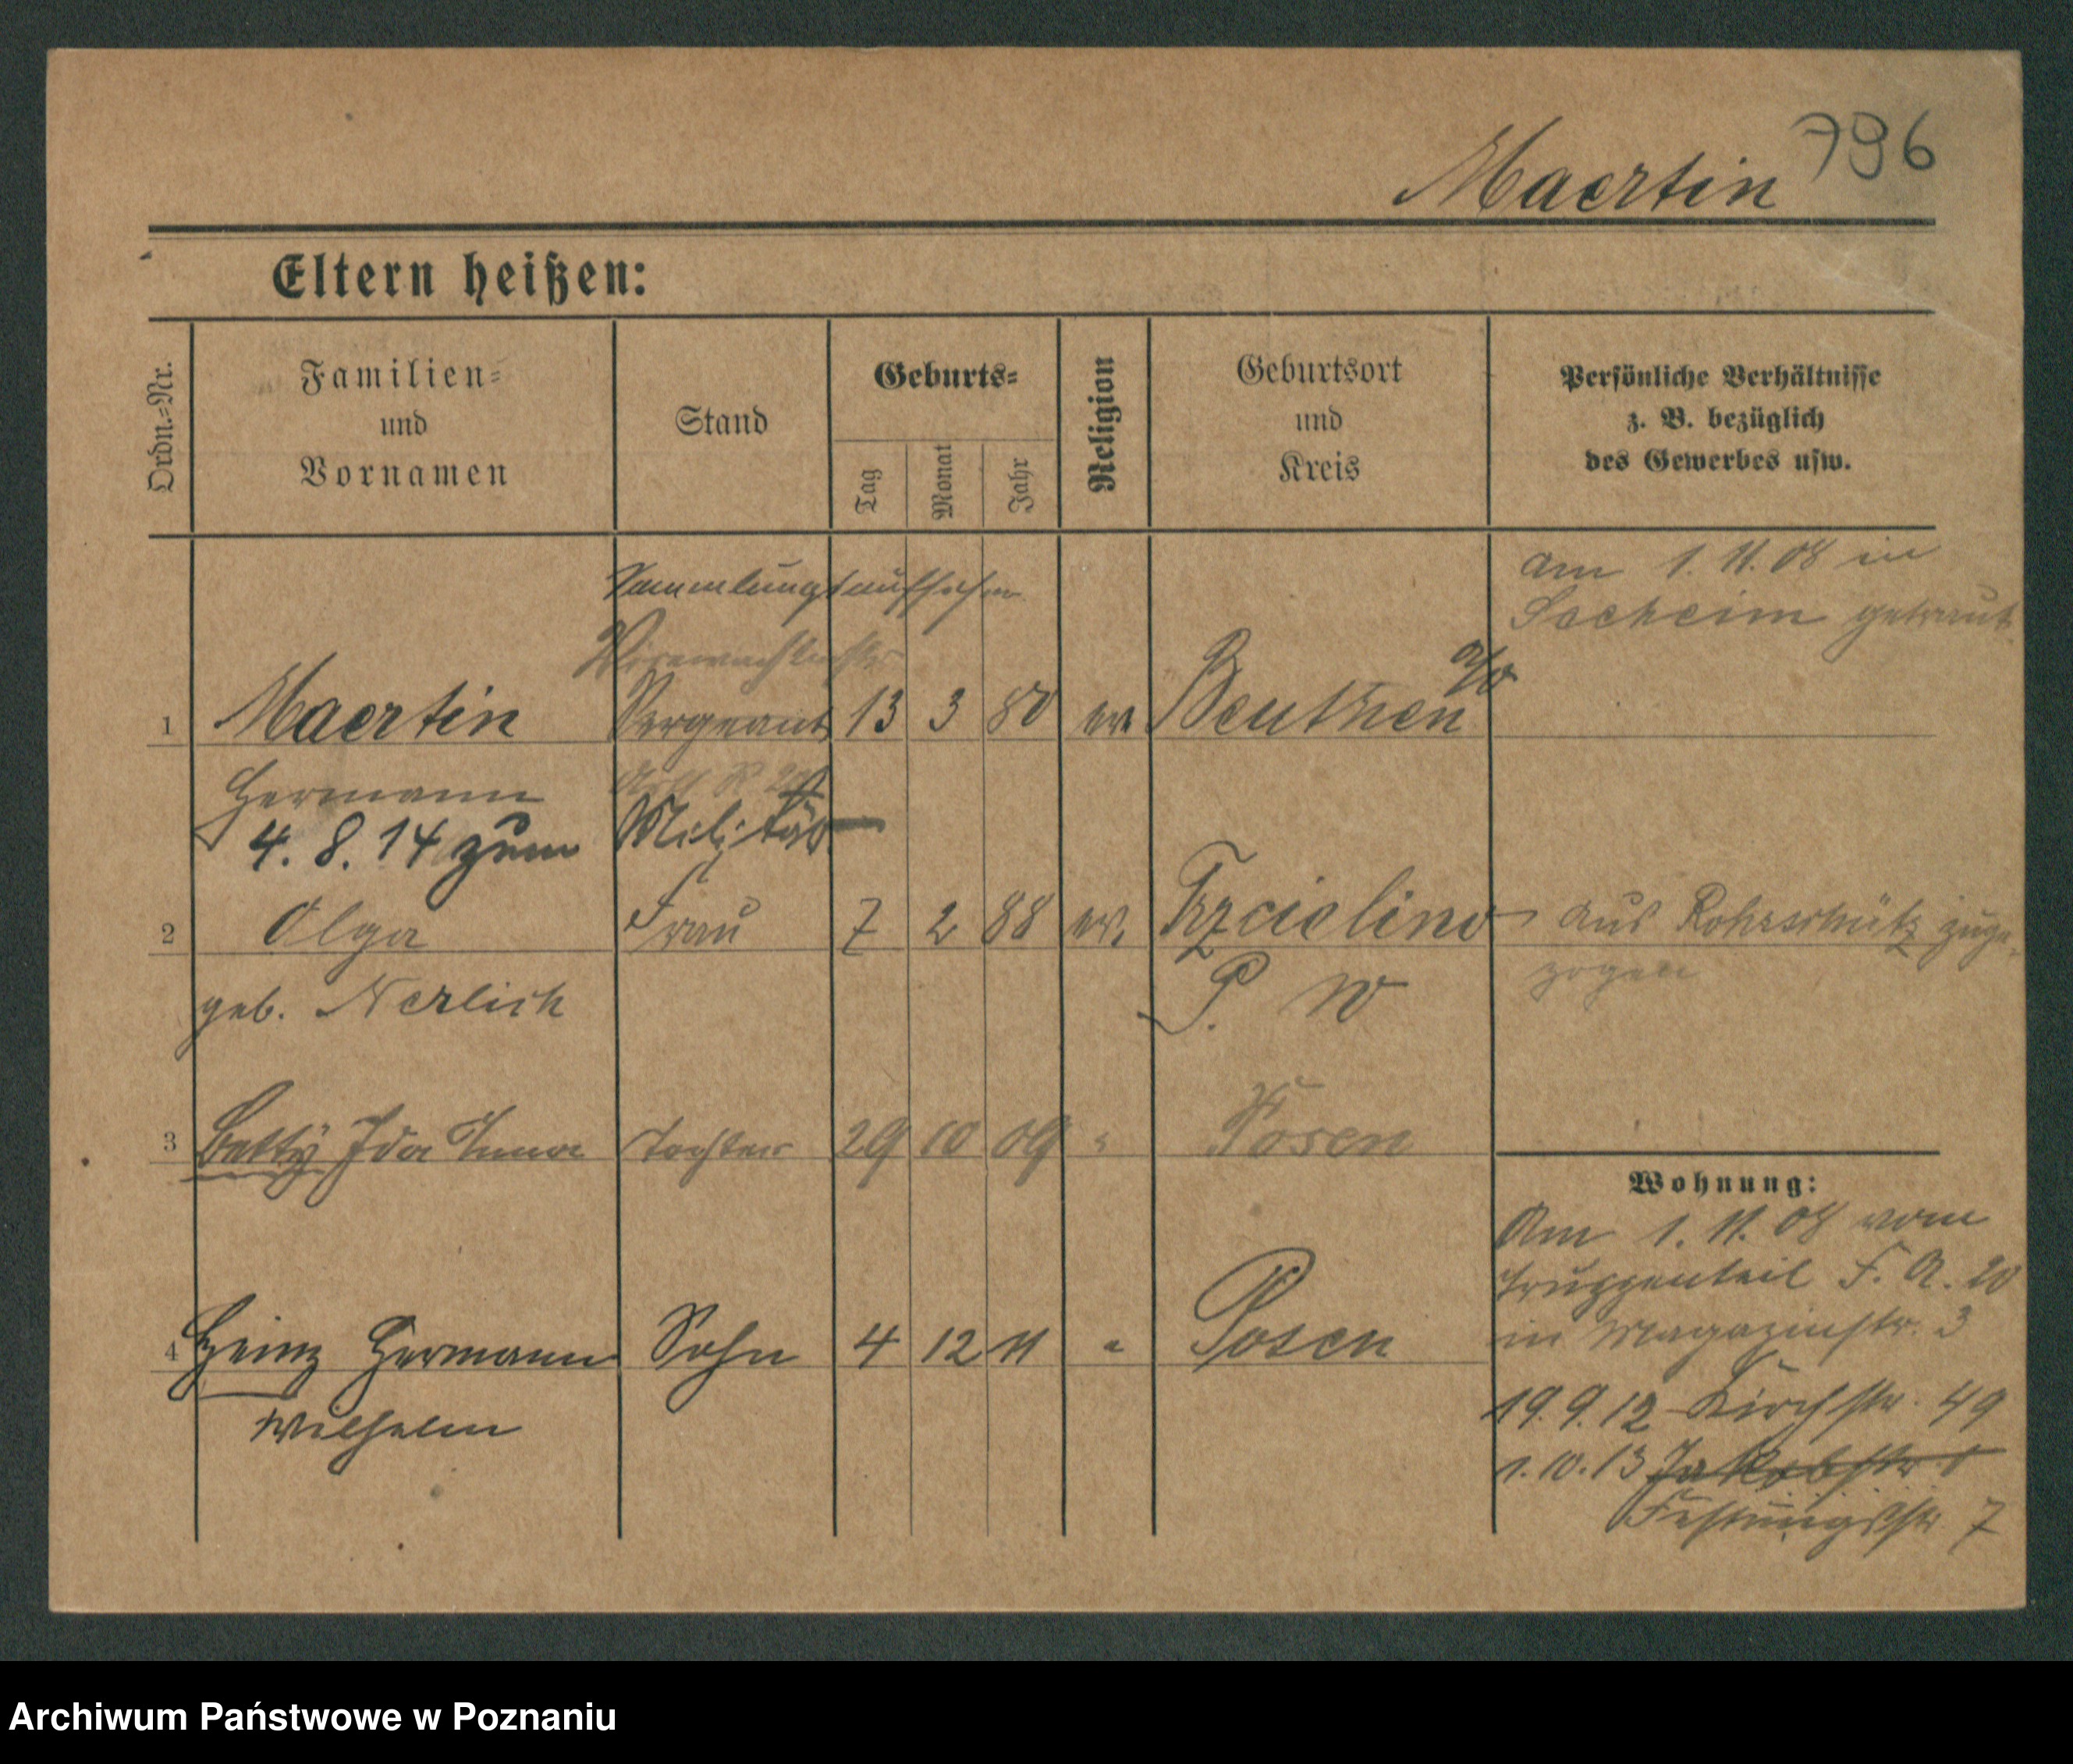 796
Maertin
Eltern heißen:
Ordn.=Nr.
Familien=
und
Vornamen
Stand
Geburts=
Tag
Monat
Jahr
Religion
Geburtsort
und
Kreis
Persönliche Verhältnisse
z. B. bezüglich
des Gewerbes usw.
Sammlungsaufseher
am 1. 11. 08 in
Seeheim getraut
1 Maertin Sergeant 13 3 80 ev. Beuthen a/O
Hermann
4. 8. 14 zum Militär
2 Olga Frau 7 2 88 ev. Trzcielino aus Rohrschütz zuge-
zogen
geb. Nerlich P. W
3 Betty Ida Anna Tochter 29 10 09 " Posen
Wohnung:
Am 1. 11. 08 vom
Truppenteil F. A. 20
in Magazinstr. 3
4 Heinz Hermann Sohn 4 12 11 " Posen
Wilhelm
19. 9. 12 Kirchstr. 49
1. 10. 13 Jakobstr.
Festungsstr 7
Archiwum Państwowe w Poznaniu